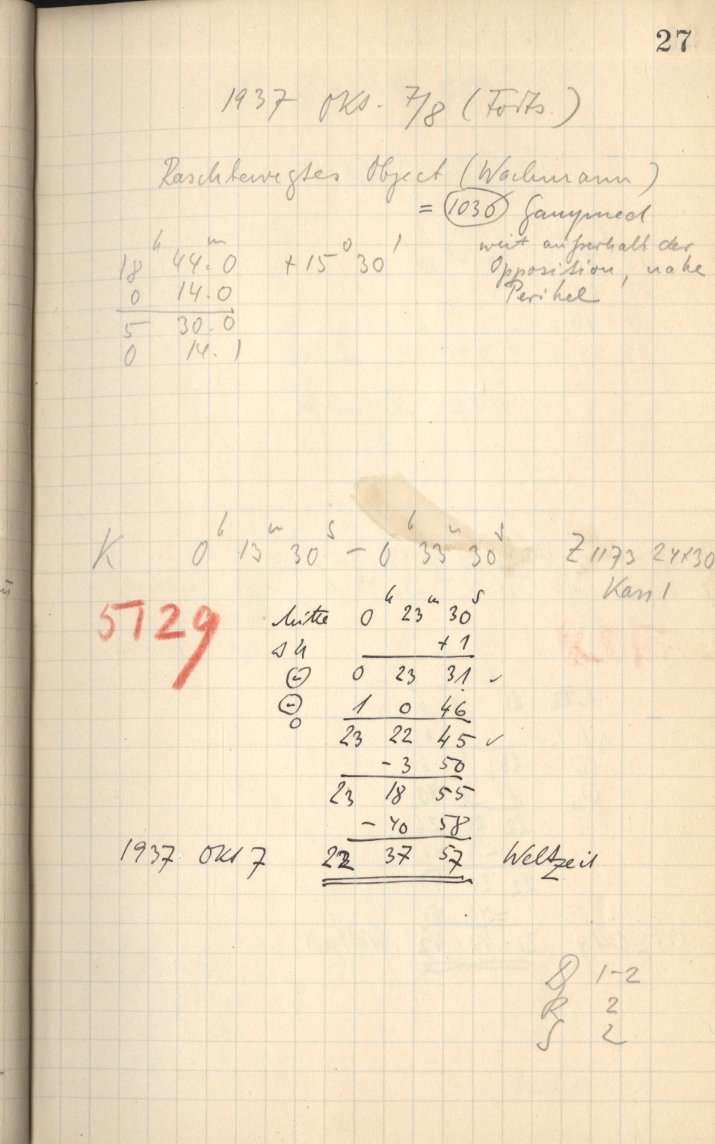 27
1937 Okt. 7/8 (Forts.)
Raschbewegtes Object (Wachmann)
= 1036 Ganymed
weit außerhalb der
Opposition, nahe
Perihel
18h 44m.0 +15° 30'
0 14.0
5 30.0
0 14.1
K 0h 13m 30s – 0h 33m 30s Z 1173 24x30
Kass 1
5129
Mitte 0h 23m 30s
+ 1
0 23 31 ✓
1 0 46
23 22 45 ✓
- 3 50
23 18 55
- 40 58
1937 Okt 7 22 37 57 Weltzeit
D 1-2
R 2
S 2